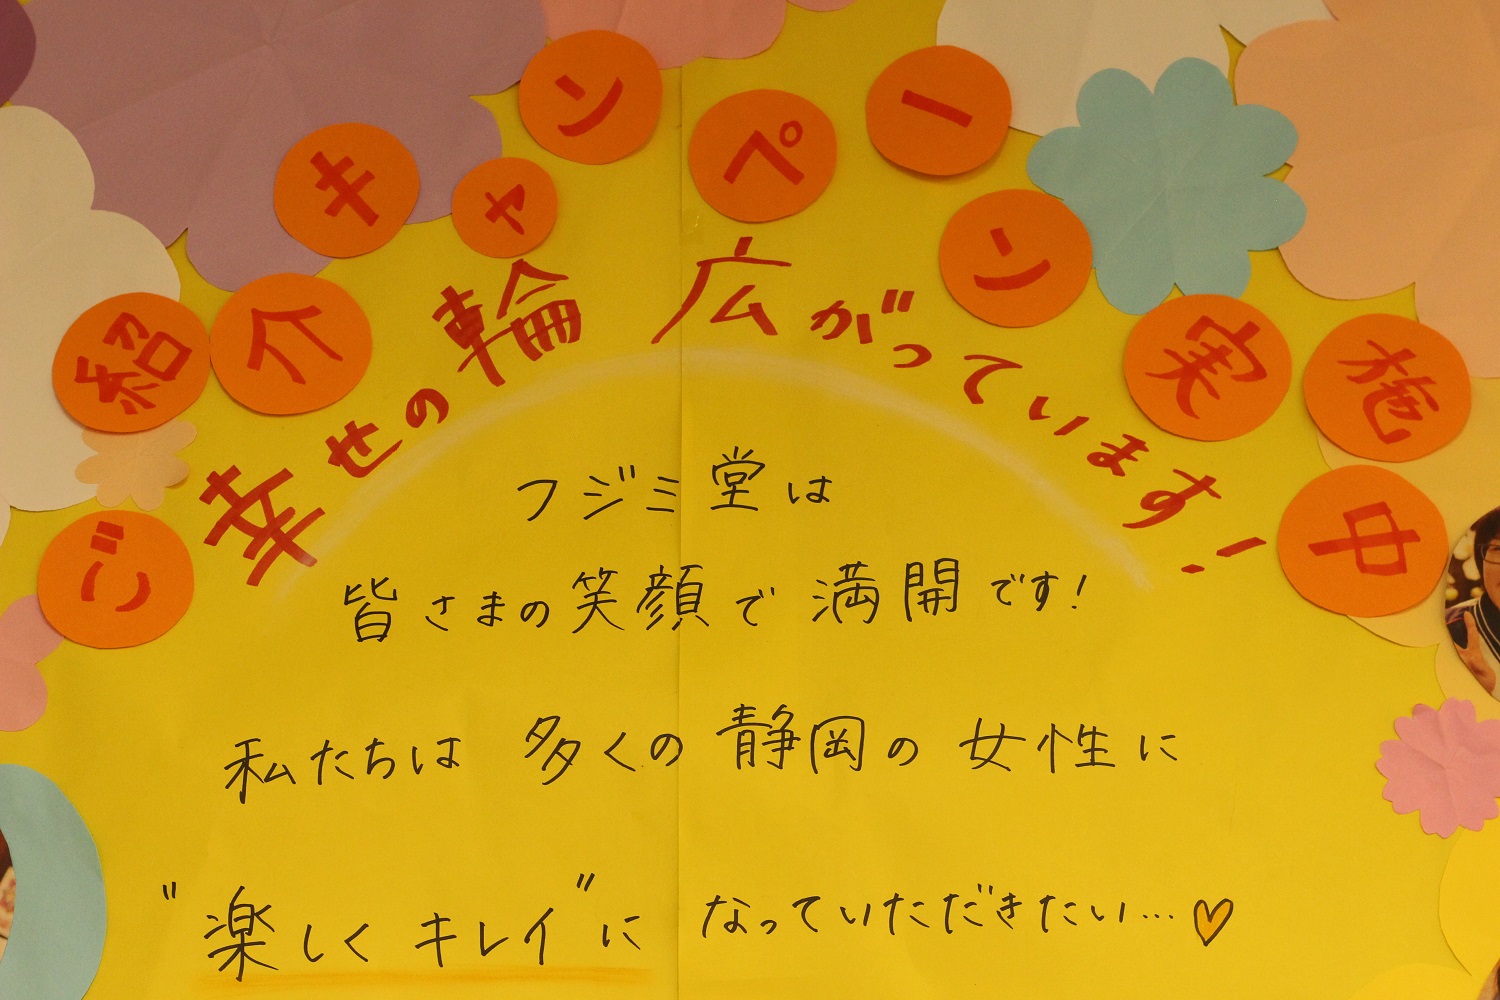 ご紹介キャンペーン実施中
幸せの輪広がっています!
フジミ堂は
皆さまの笑顔で満開です!
私たちは多くの静岡の女性に
"楽しくキレイ"になっていただきたい…♡